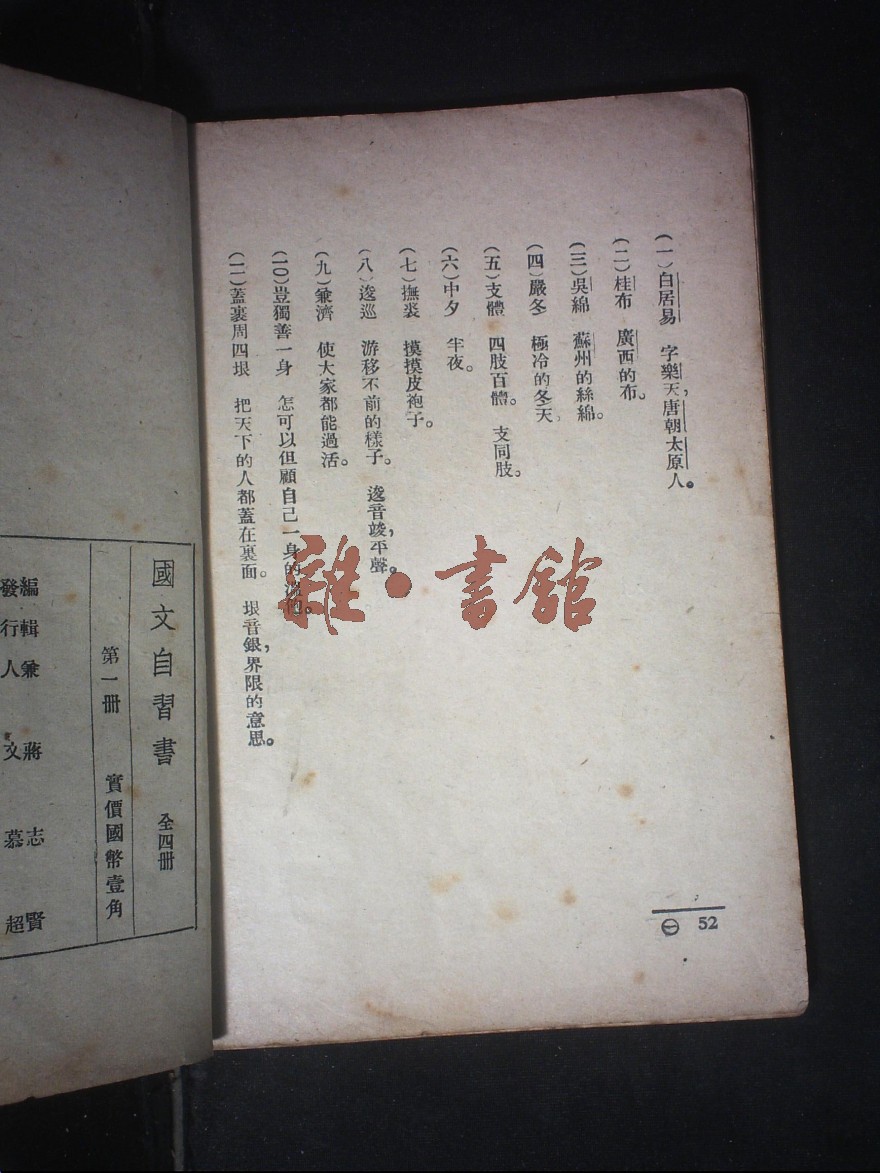 (一)白居易　字樂天,唐朝太原人。
(二)桂布　廣西的布。
(三)吳綿　蘇州的絲綿。
(四)嚴冬　極冷的冬天
(五)支體　四肢百體。　支同肢。
(六)中夕　半夜。
(七)撫裘　摸摸皮袍子。
(八)逡巡　游移不前的樣子。　逡音竣,平聲。
(九)兼濟　使大家都能過活。
(10)豈獨善一身　怎可以但顧自己一身的溫飽。
(一一)蓋裹周四垠　把天下的人都蓋在裏面。　垠音銀,界限的意思。
52
㊀
雜·書館
國文自習書　全四册
第一册　實價國幣壹角
編輯兼　蔣志賢
發行人　文慕超